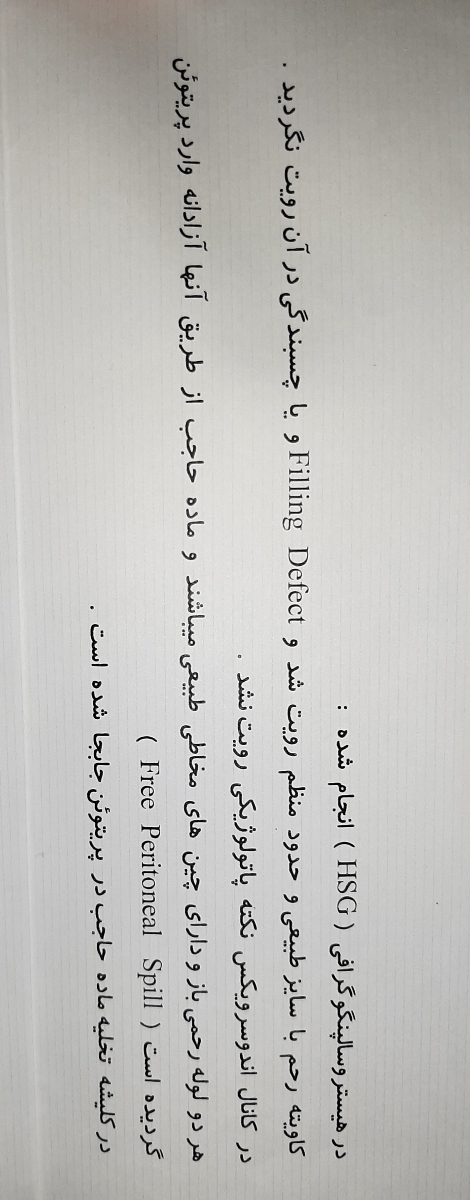 در هیستروسالپنگوگرافی ( HSG ) انجام شده :
کاویته رحم با سایز طبیعی و حدود منظم رویت شد و Filling Defect و یا چسبندگی در آن رویت نگردید .
در کانال اندوسرویکس نکته پاتولوژیکی رویت نشد .
هر دو لوله رحمی باز و دارای چین های مخاطی طبیعی میباشند و ماده حاجب از طریق آنها آزادانه وارد پریتوئن
گردیده است ( Free Peritoneal Spill )
در کلیشه تخلیه ماده حاجب در پریتوئن جابجا شده است .